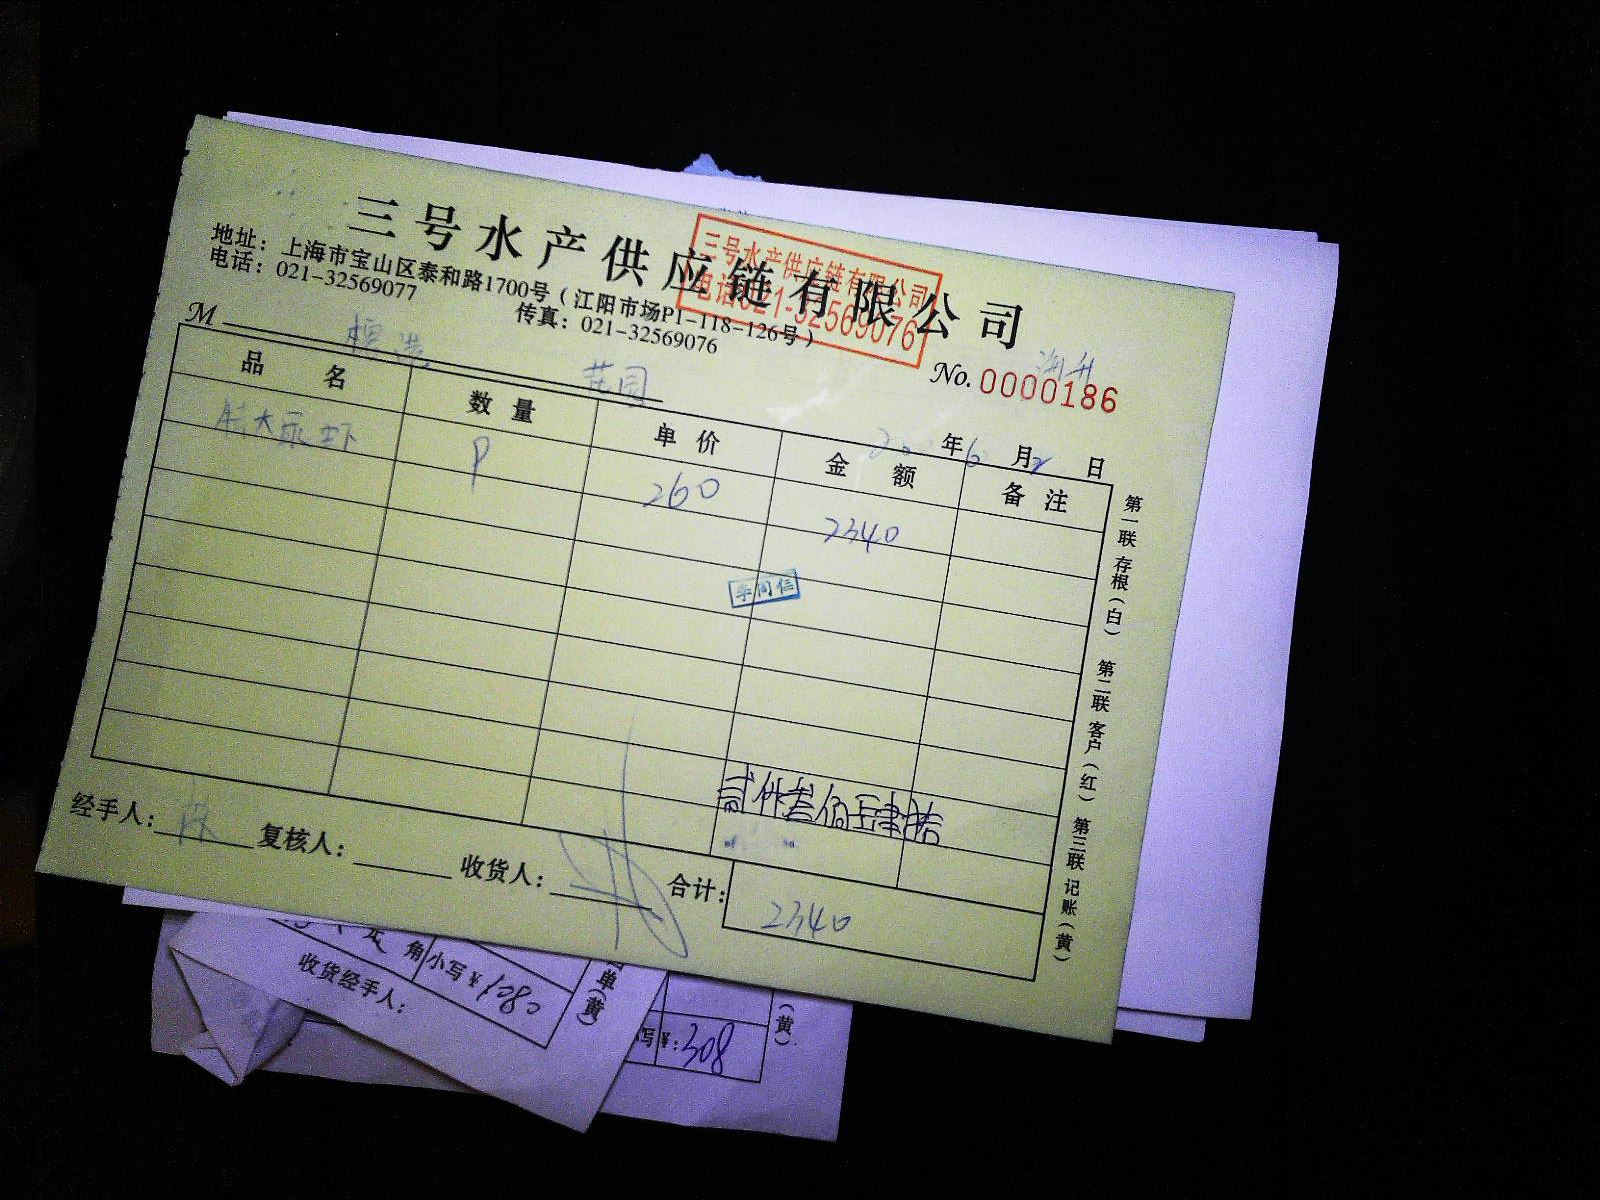 三号水产供应链有限公司
三号水产供应链有限公司
电话021-32569076
地址：上海市宝山区泰和路1700号（江阳市场P1-118-126号）
电话：021-32569077 传真：021-32569076
M
花园
No. 0000186
年6月2日
品名 数量 单价 金额 备注
9 260 2340
贰仟叁佰肆拾
经手人： 陈 复核人： 收货人： 合计： 2340
第一联 存根（白） 第二联 客户（红） 第三联 记账（黄）
角 小写¥1080
收货经手人：
单（黄）
写¥：308
（黄）